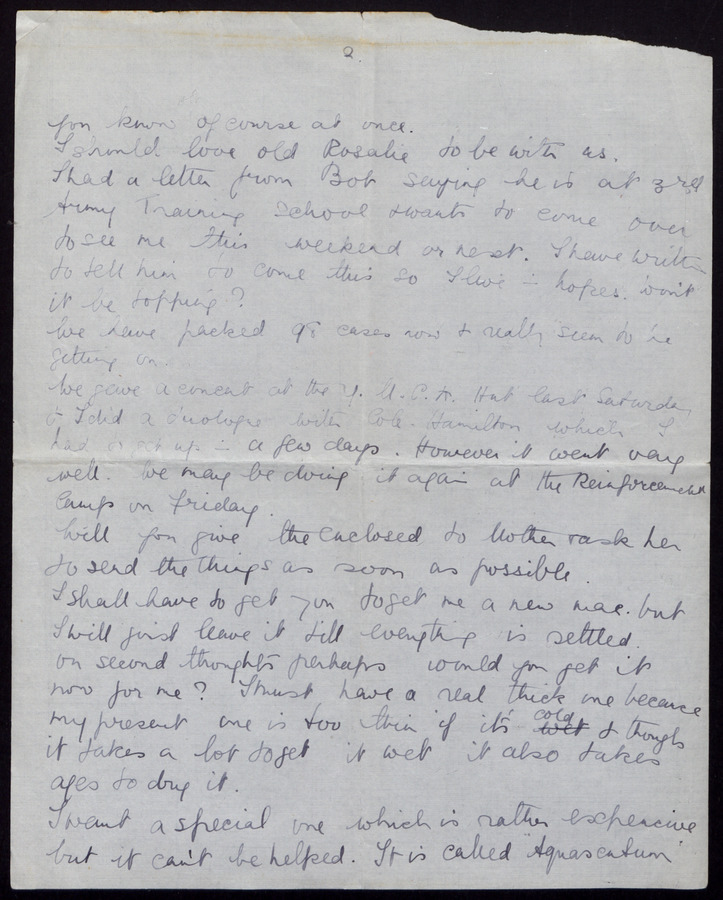 2.
you know of course at once.
I should love old Rosalie to be with us.
I had a letter from Bob saying he is at 3rd
Army Training School & wants to come over
to see me this weekend or next. I have written
to tell him to come this so I live in hopes. won't
it be topping?
We have packed 98 cases now & really seem to be
getting on.
We gave a concert at the Y.M.C.A. Hut last Saturday
& I did a duologue with Cole-Hamilton which I
had to get up in a few days. However it went very
well. We may be doing it again at the Reinforcement
Camp on Friday.
Will you give the enclosed to Mother & ask her
to send the things as soon as possible.
I shall have to get you to get me a new mac. but
I will just leave it till everything is settled.
on second thoughts perhaps would you get it
now for me? I must have a real thick one because
my present one is too thin if it's wet cold & though
it takes a lot to get it wet it also takes
ages to dry it.
I want a special one which is rather expencive
but it can't be helped. It is called "Aquascutum"